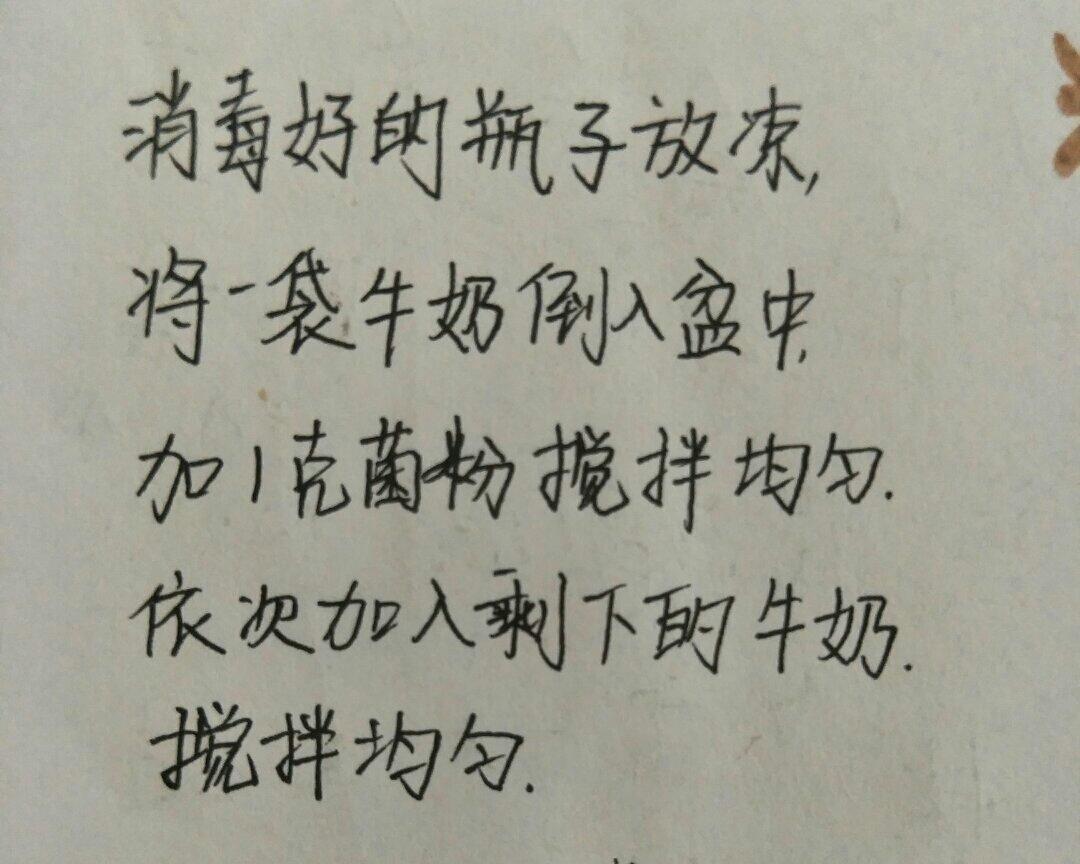 消毒好的瓶子放凉,
将一袋牛奶倒入盆中,
加1克菌粉搅拌均匀.
依次加入剩下的牛奶.
搅拌均匀.